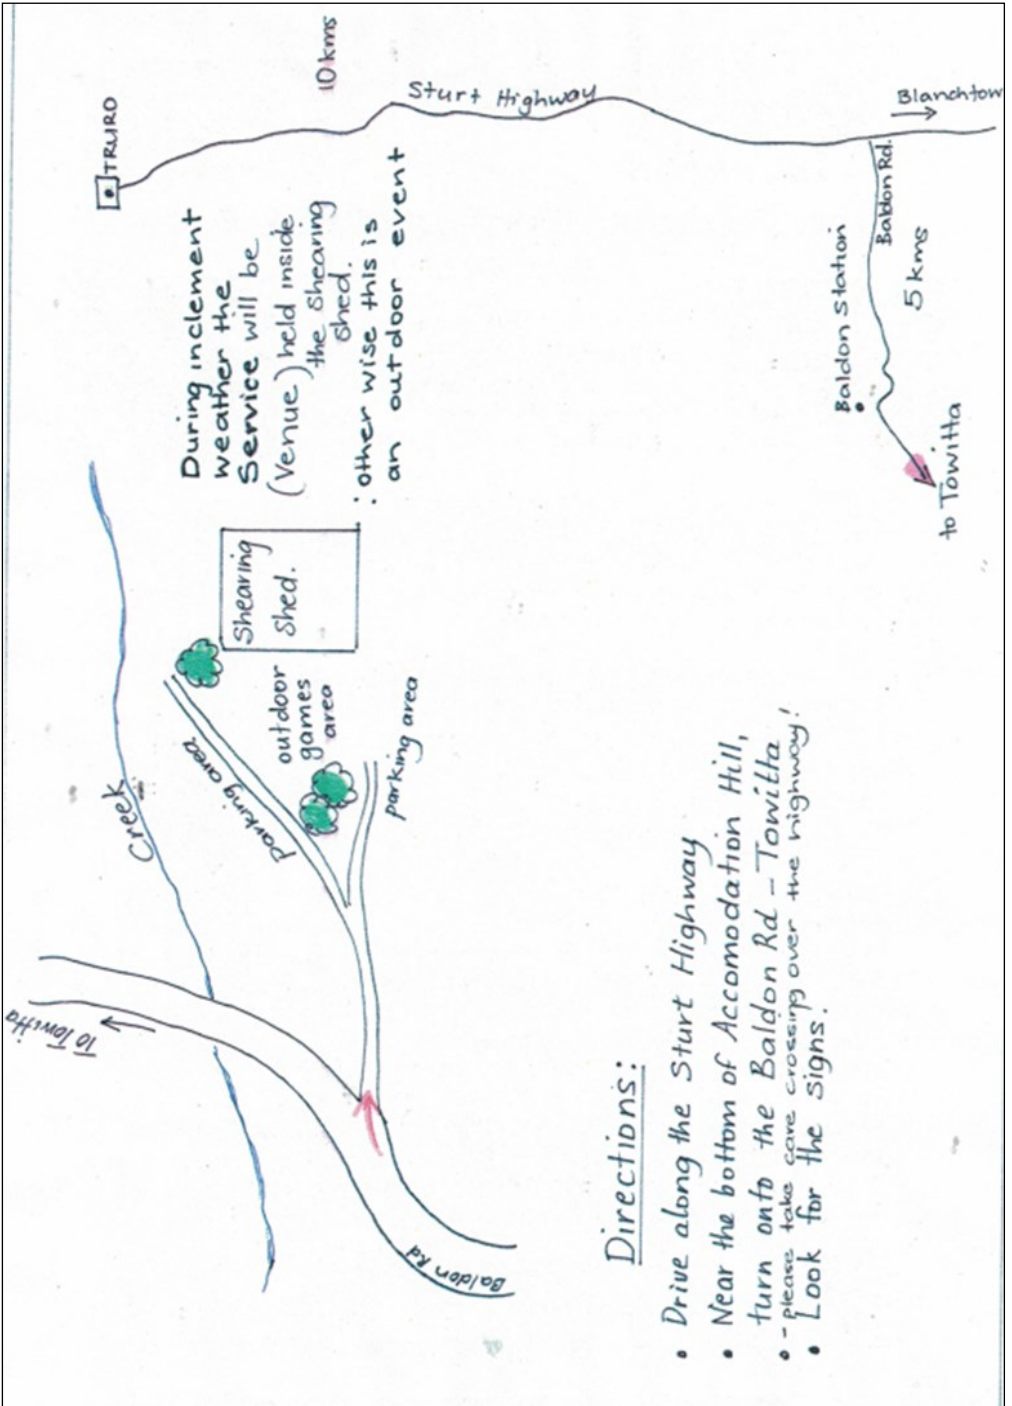 TRURO
10 kms
Sturt Highway
Blanchtow
Baldon Rd.
5 kms
Baldon Station
to Towitta
During inclement
weather the
Service will be
(Venue) held inside
the shearing
shed.
: other wise this is
an outdoor event
Shearing
Shed.
outdoor
games
area
parking area
parking area
Creek
To Towitta
Baldon Rd
Directions:
• Drive along the Sturt Highway
• Near the bottom of Accomodation Hill,
turn onto the Baldon Rd - Towitta
• - please take care crossing over the highway!
• Look for the signs.